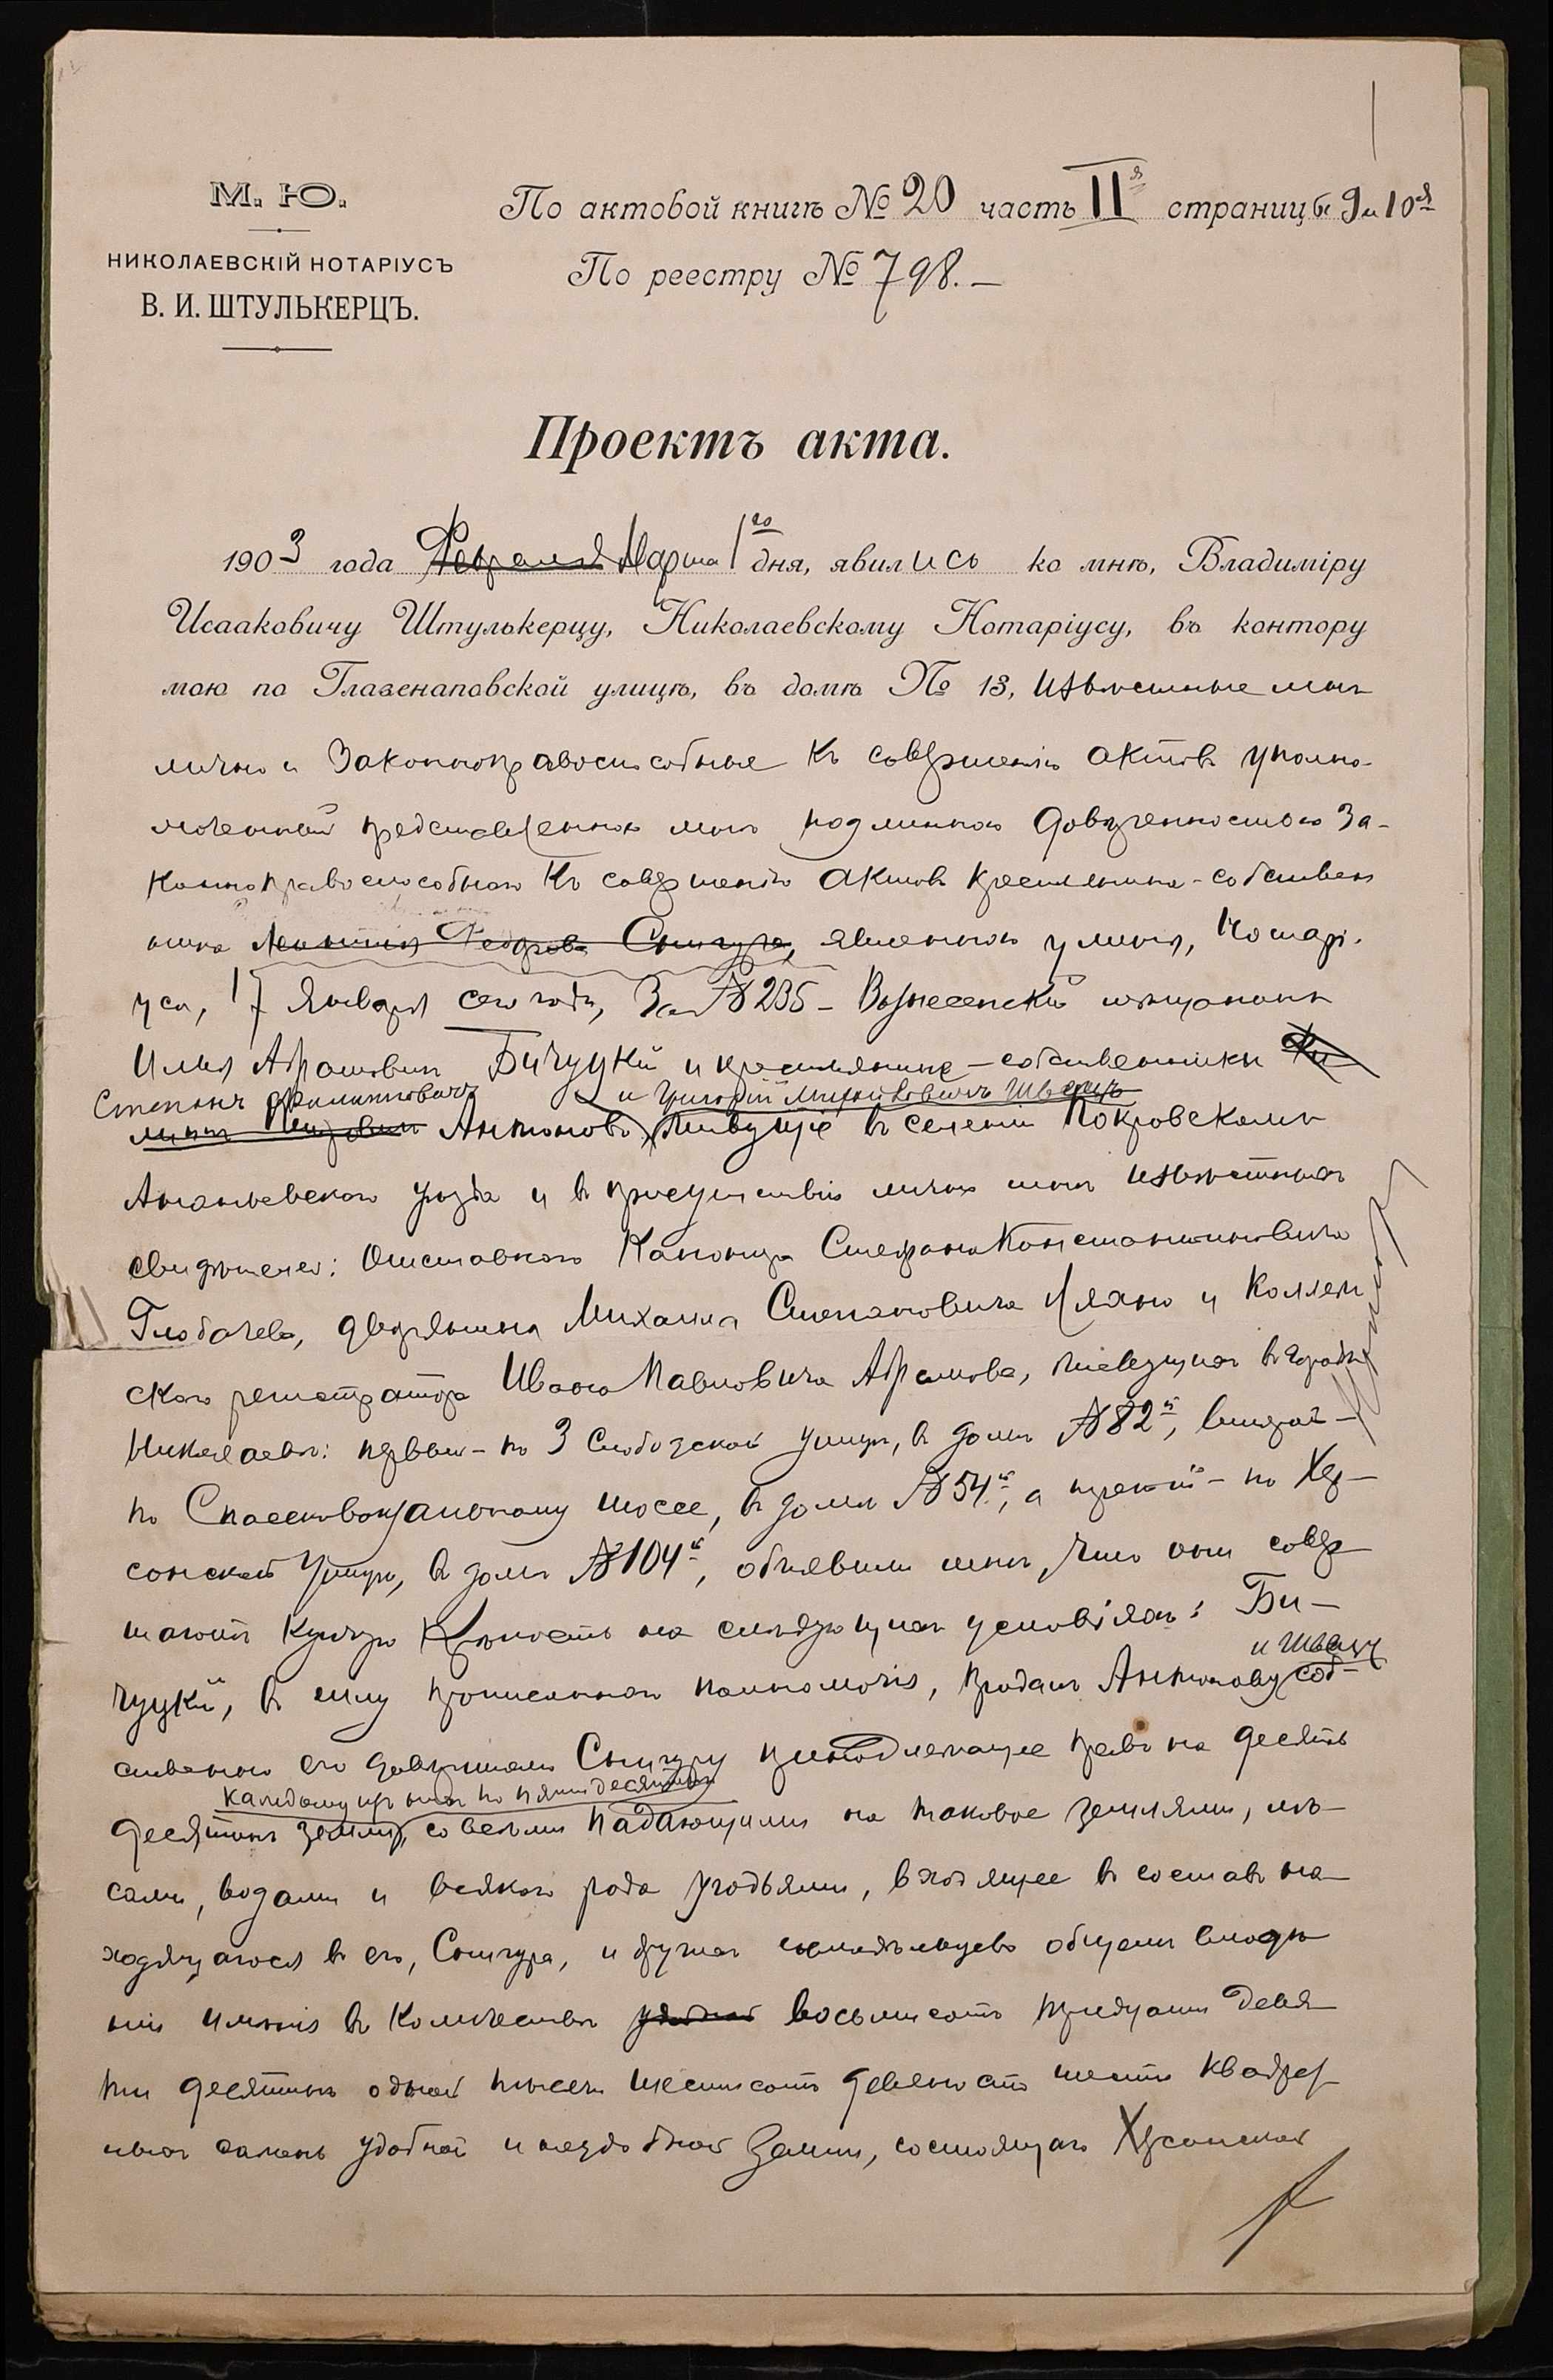 М. Ю.
НИКОЛАЕВСКІЙ НОТАРІУСЪ
В. И. ШТУЛЬКЕРЦЪ.
По актовой книгѣ № 20 часть II я страницы 9 и 10 я
По реестру № 798. —
Проектъ акта.
1903 года Февраля Марта 1 го дня, явились ко мнѣ, Владиміру
Исааковичу Штулькерцу, Николаевскому Нотаріусу, въ контору
мою по Глазенаповской улицѣ, въ домѣ № 13, извѣстные мнѣ
лично и законноправоспособные къ совершенію актовъ уполно-
моченный представленною мнѣ подлинною довѣренностью за-
конноправоспособнаго къ совершенію актовъ крестьянина-собствен
ника Федорова Снигура, явленною у меня, Нотарі-
уса, 17 Января сего года, за № 235 — Вознесенскій мѣщанинъ
Илья Абрамовичъ Бичуцкій и крестьяне-собственники Фи
Степанъ Филипповичъ и Григорій Михайловичъ Швецъ
липпъ Петровичъ Антоновъ живущіе въ селеніи Покровскомъ
Ананьевскаго уѣзда и въ присутствіи лично мнѣ извѣстныхъ
свидѣтелей: Отставного Капитана Стефана Константиновича
Глобачева, дворянина Михаила Степановича и Коллеж
скаго регистратора Ивана Павловича Абрамова, живущихъ въ городѣ
Николаевѣ: первый — по 3 Слободской улицѣ, въ домѣ № 82 й, второй —
по шоссе, въ домѣ № 54 й, а третій — по Хер-
сонской улицѣ, въ домѣ № 104 й, объявили мнѣ, что они совер-
шаютъ купчую крѣпость на слѣдующихъ условіяхъ: Би-
и Швецу
чуцкій, въ силу прописаннаго полномочія, продалъ Антонову соб-
ственно его довѣрителю Снигуру принадлежащее право на десять
каждому изъ нихъ по пяти десятинъ
десятинъ земли, со всѣми падающими на таковое землями, лѣ-
сами, водами и всякаго рода угодьями, входящее въ составъ на-
ходящагося въ его, Снигура, и другихъ совладѣльцевъ общемъ владѣ-
ніи имѣнія въ количествѣ удобной восьмисотъ тридцати девя-
ти десятинъ одной тысячи шестисотъ девяносто шести квадрат-
ныхъ сажень удобной и неудобной земли, состоящаго Херсонской